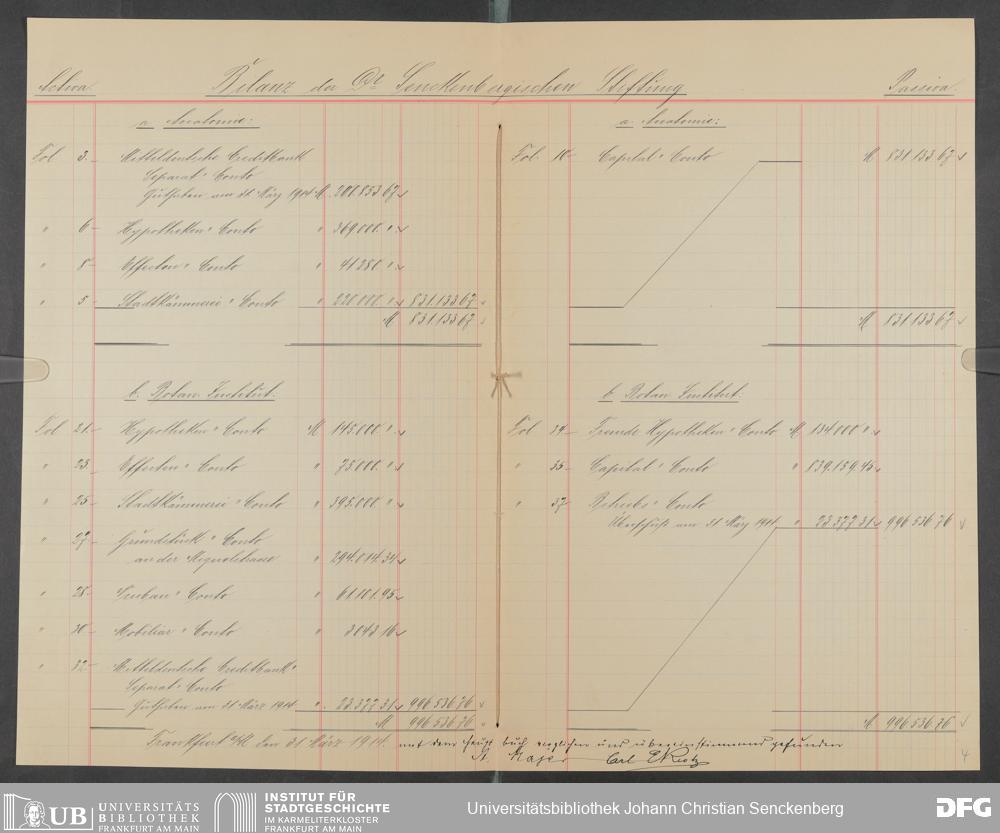 Activa.
Bilanz der Dr. Senckenbergischen Stiftung
Passiva.
a. Anatomie:
Fol 3. Mitteldeutsche Creditbank
Separat-Conto
Guthaben am 31 März 1914 M. 200.853 67
" 6 Hypotheken-Conto " 369.000. "
" 8 Effecten-Conto " 41280. "
" 5 Stadtkämmerei-Conto " 220.000. " 831.133 67
M 831.133 67
a. Anatomie:
Fol. 10 Capital-Conto M 831.133 67
M 831.133 67
b. Botan. Institut.
Fol 21. Hypotheken-Conto M 145.000. "
" 23. Effecten-Conto " 75.000. "
" 25 Stadtkämmerei-Conto " 395.000. "
" 27 Grundstück-Conto
an der Miquelstrasse " 294.014.34
" 28 Neubau-Conto " 61.101.95
" 30 Mobiliar-Conto " 3043 16
" 32 Mitteldeutsche Creditbank
Separat-Conto
Guthaben am 31 März 1914 " 23.377 31 996 536 76
M 996 536 76
b. Botan. Institut.
Fol 34 Fremde Hypotheken-Conto M 134.000 "
" 35 Capital-Conto " 839.159.45
" 37 Betriebs-Conto
Überschuß am 31 März 1914 " 23.377 31 996 536 76
M 996 536 76
Frankfurt a/M. den 31 März 1914. mit dem Haupt buch verglichen und übereinstimmend gefunden
Majer Carl
4
UB UNIVERSITÄTS
BIBLIOTHEK
FRANKFURT AM MAIN
INSTITUT FÜR
STADTGESCHICHTE
IM KARMELITERKLOSTER
FRANKFURT AM MAIN
Universitätsbibliothek Johann Christian Senckenberg
DFG